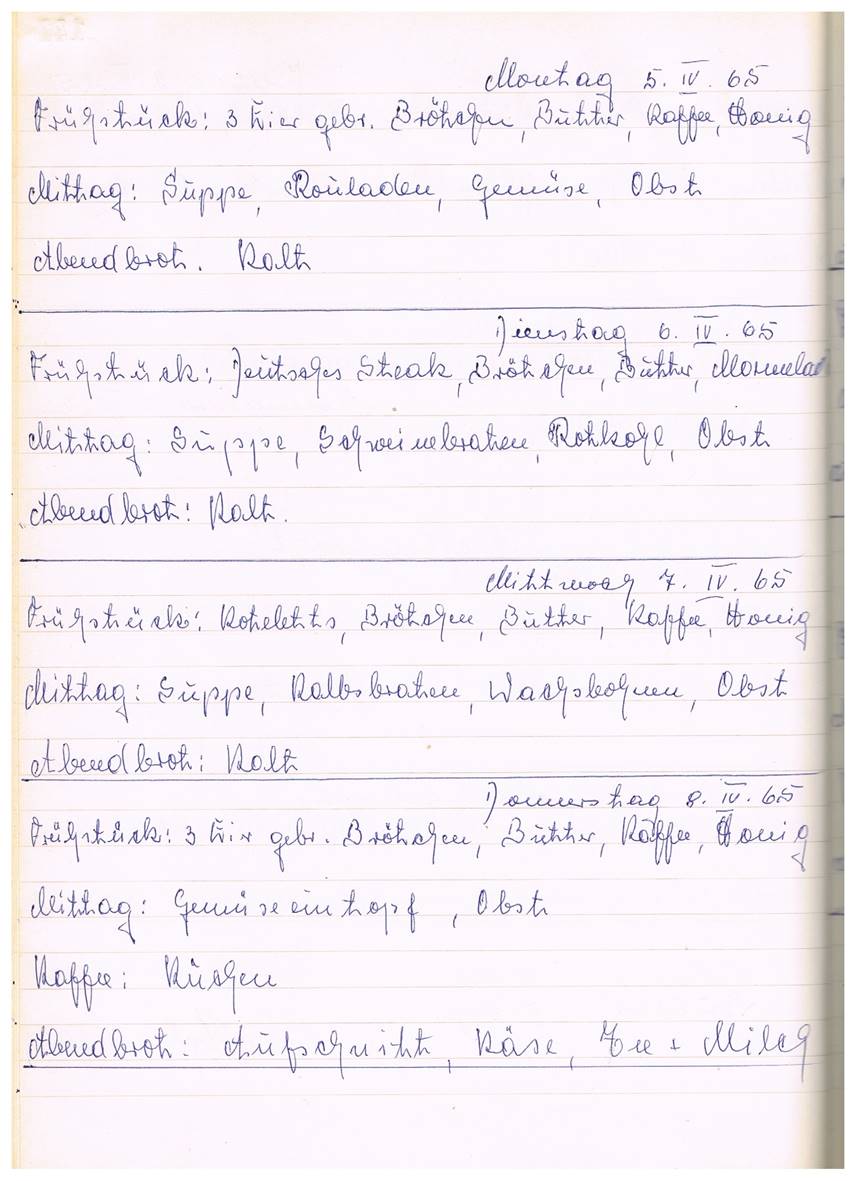 Montag 5. IV. 65
Frühstück: 3 Eier gebr. Brötchen, Butter, Kaffee, Honig
Mittag: Suppe, Rouladen, Gemüse, Obst
Abendbrot. Kalt
Dienstag 6. IV. 65
Frühstück: Deutsches Steak, Brötchen, Butter, Marmelad
Mittag: Suppe, Schweinebraten, Rotkohl, Obst
Abendbrot: Kalt.
Mittwoch 7. IV. 65
Frühstück: Koteletts, Brötchen, Butter, Kaffee, Honig
Mittag: Suppe, Kalbsbraten, Wachsbohnen, Obst
Abendbrot: Kalt
Donnerstag 8. IV. 65
Frühstück: 3 Eier gebr. Brötchen, Butter, Kaffee, Honig
Mittag: Gemüseeintopf, Obst
Kaffee: Kuchen
Abendbrot: Aufschnitt, Käse, Tee + Milch